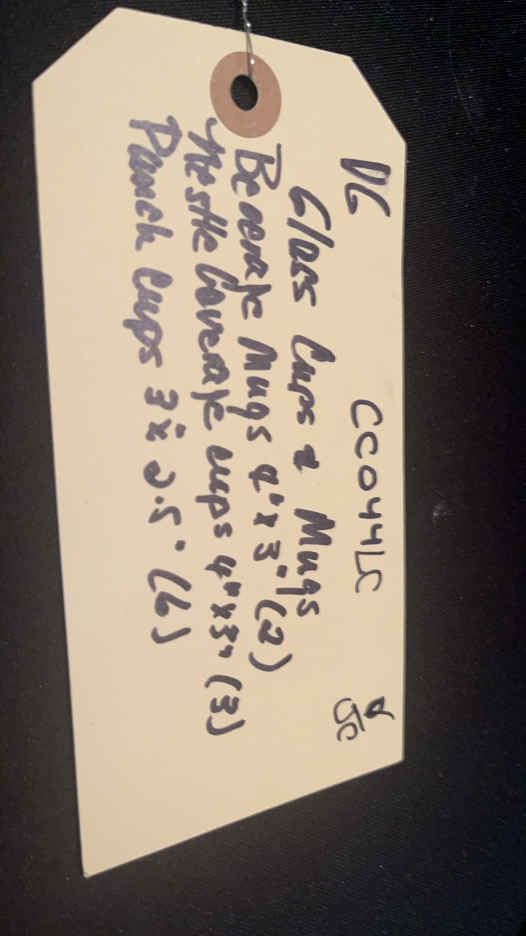 DG CC044LC
Glass Cups & Mugs
Beverage Mugs 4" x 3" (2)
Nestle Coverage cups 4" x 3" (3)
Punch Cups 3" x 2.5" (6)